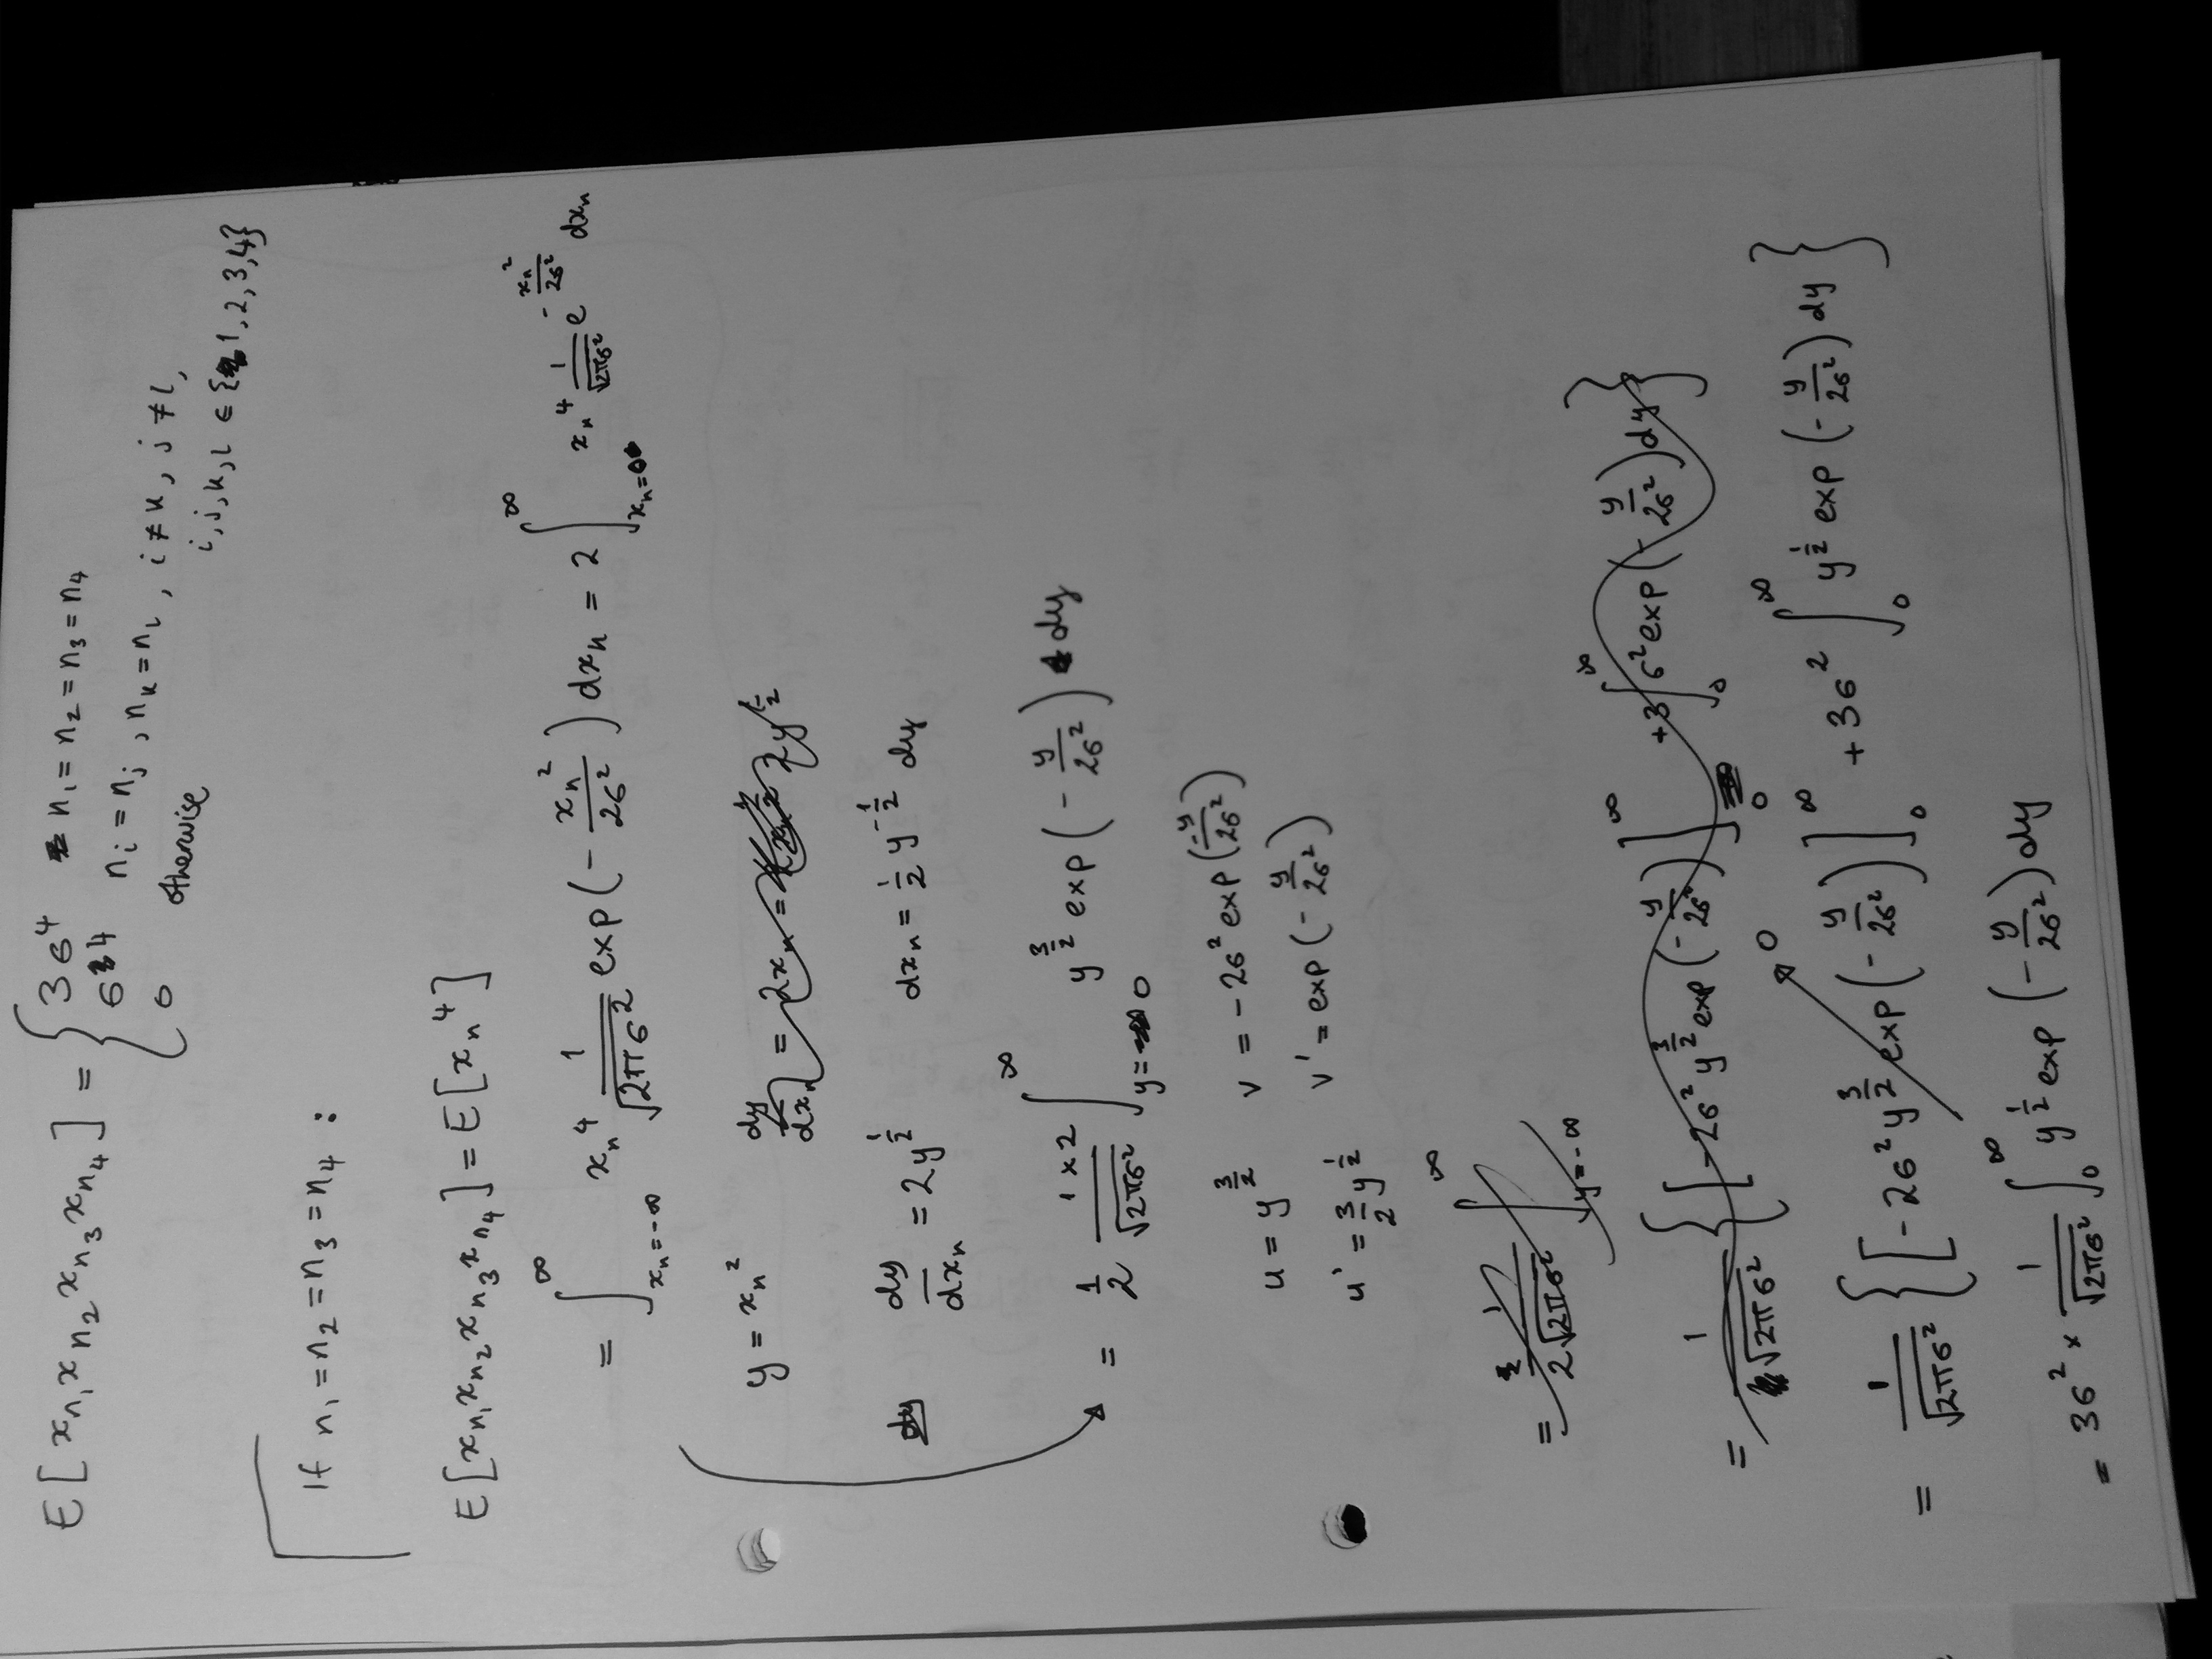 E[x_{n_1} x_{n_2} x_{n_3} x_{n_4}] = { 3σ^4 n_1 = n_2 = n_3 = n_4
σ^4 n_i = n_j , n_k = n_l , i ≠ k, j ≠ l,
0 otherwise i,j,k,l ∈ {1,2,3,4}
If n_1 = n_2 = n_3 = n_4 :
E[x_{n_1} x_{n_2} x_{n_3} x_{n_4}] = E[x_n^4]
= ∫_{x_n=-∞}^{∞} x_n^4 \frac{1}{√(2πσ^2)} exp(-\frac{x_n^2}{2σ^2}) dx_n = 2 ∫_{x_n=0}^{∞} x_n^4 \frac{1}{√(2πσ^2)} e^{-\frac{x_n^2}{2σ^2}} dx_n
y = x_n^2 \frac{dy}{dx_n} = 2x_n = 2y^{\frac{1}{2}}
dy \frac{dy}{dx_n} = 2y^{\frac{1}{2}} dx_n = \frac{1}{2} y^{-\frac{1}{2}} dy
= \frac{1}{2} \frac{1×2}{√(2πσ^2)} ∫_{y=0}^{∞} y^{\frac{3}{2}} exp(-\frac{y}{2σ^2}) dy
u = y^{\frac{3}{2}} v = -2σ^2 exp(\frac{-y}{2σ^2})
u' = \frac{3}{2} y^{\frac{1}{2}} v' = exp(-\frac{y}{2σ^2})
= \frac{1}{2√(2πσ^2)} ∫_{y=-∞}^{∞}
= \frac{1}{√(2πσ^2)} { [-2σ^2 y^{\frac{3}{2}} exp(-\frac{y}{2σ^2})]_0^∞ + 3∫_0^∞ σ^2 exp(-\frac{y}{2σ^2}) dy }
= \frac{1}{√(2πσ^2)} { [-2σ^2 y^{\frac{3}{2}} exp(-\frac{y}{2σ^2})]_0^∞ → 0 + 3σ^2 ∫_0^∞ y^{\frac{1}{2}} exp(-\frac{y}{2σ^2}) dy }
= 3σ^2 × \frac{1}{√(2πσ^2)} ∫_0^∞ y^{\frac{1}{2}} exp(-\frac{y}{2σ^2}) dy